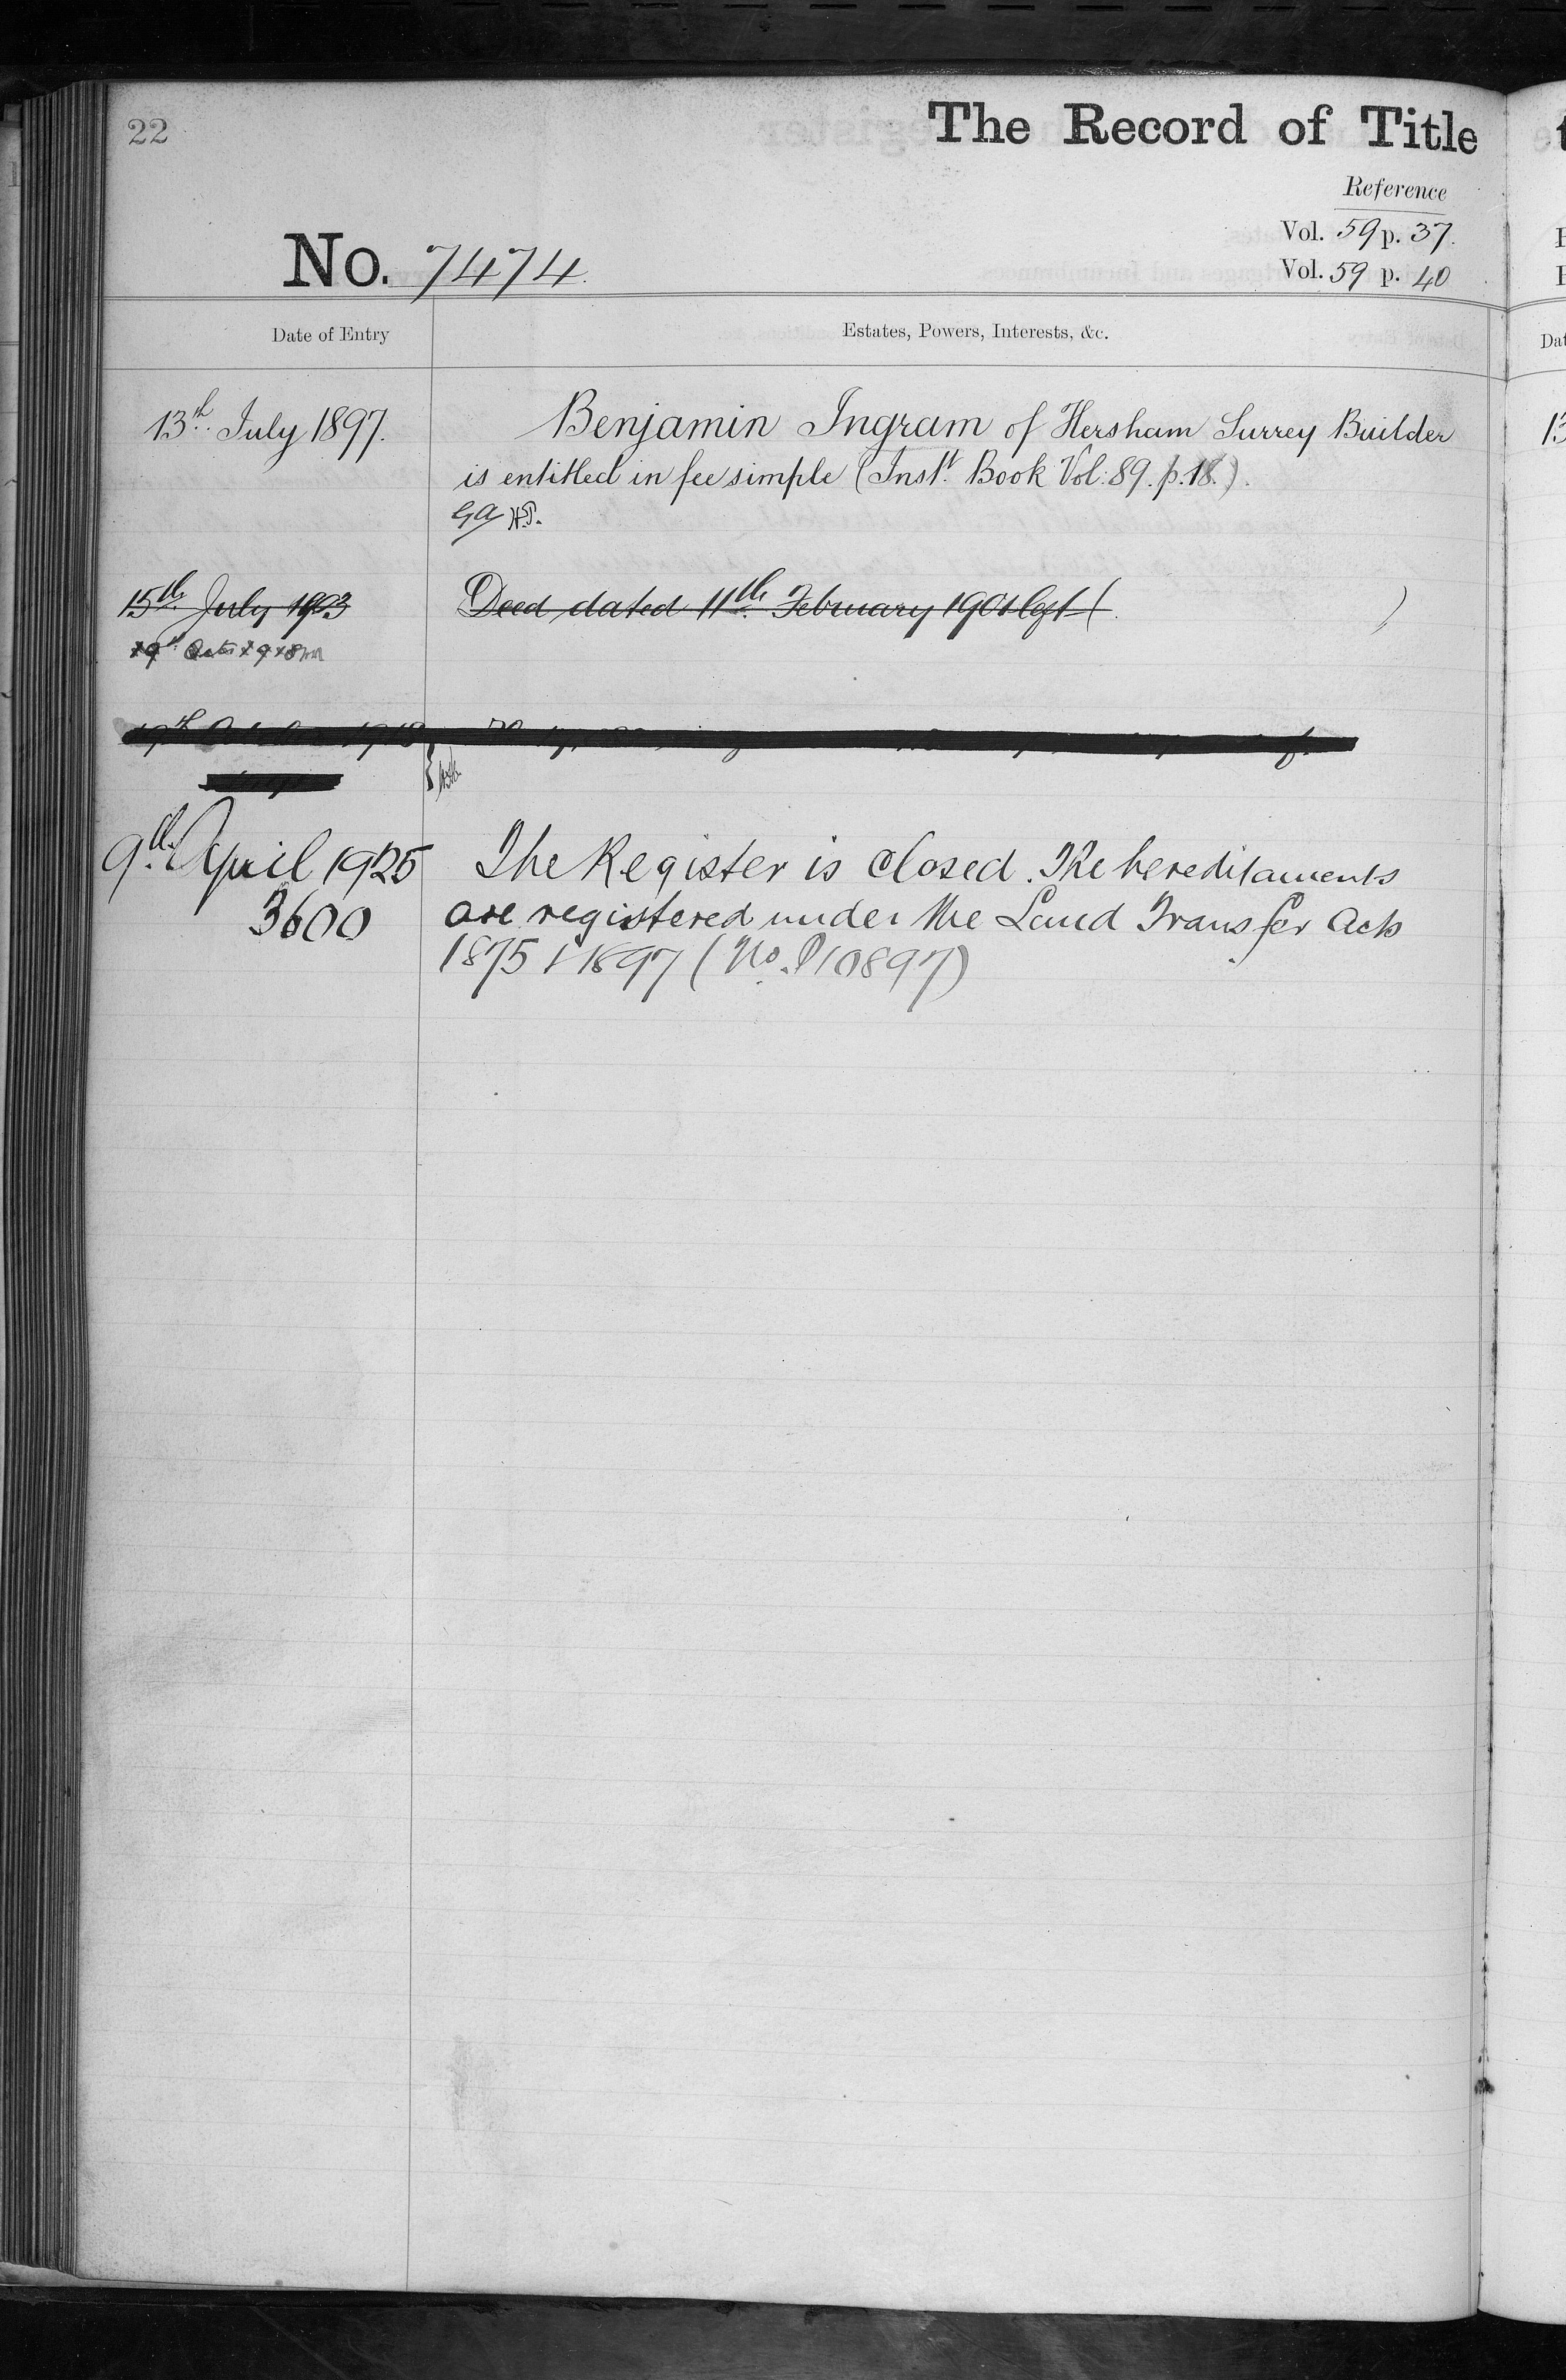 22
The Record of Title
Reference
Vol. 59 p. 37.
Vol. 59 p. 40
No. 7474
Date of Entry
Estates, Powers, Interests, &c.
13th July 1897.
Benjamin Ingram of Hersham Surrey Builder
is entitled in fee simple (Inst. Book Vol: 89. p. 18.).
15th July 1903
Deed dated 11th February 1901 left ( )
9th April 1925
The Register is closed. The hereditaments
3600
are registered under the Land Transfer Acts
1875 & 1897 (No. P10897)